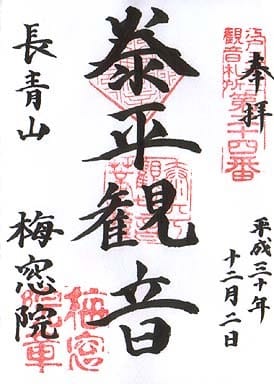 奉拝
江戸
観音札所
第二十四番
平成三十年
十二月二日
泰平観音
長青山
梅窓院
梅窓
院章